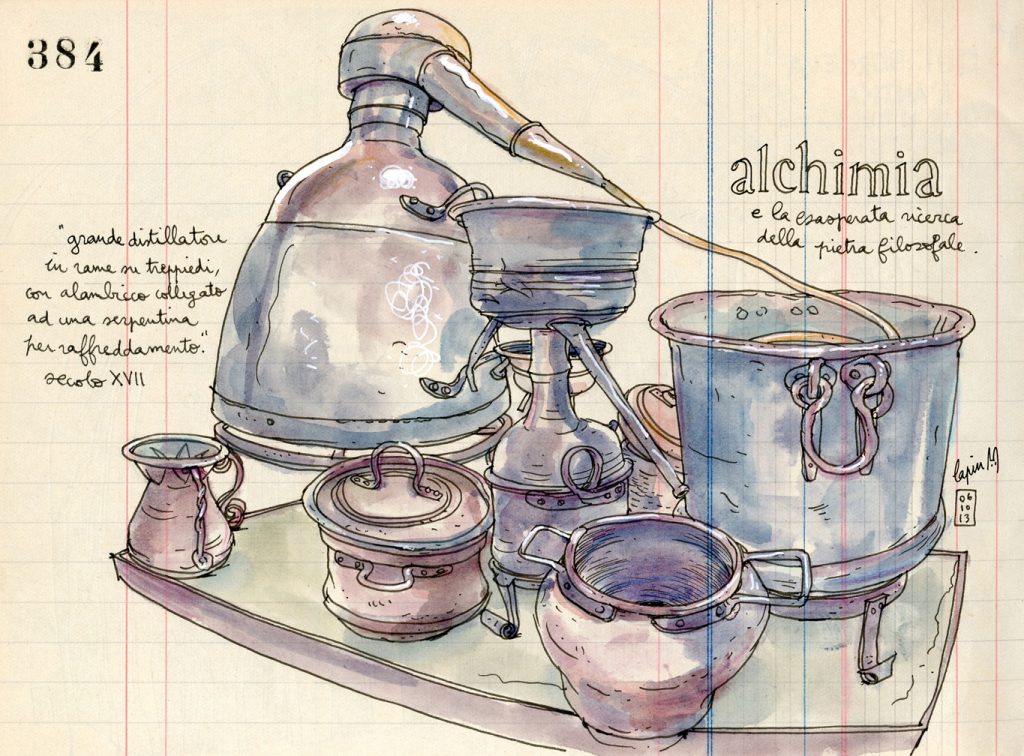 384
alchimia
e la esasperata ricerca
della pietra filosofale.
"grande distillatore
in rame su treppiedi,
con alambicco colligato
ad una serpentina
per raffreddamento."
secolo XVII
lapin
06
10
13